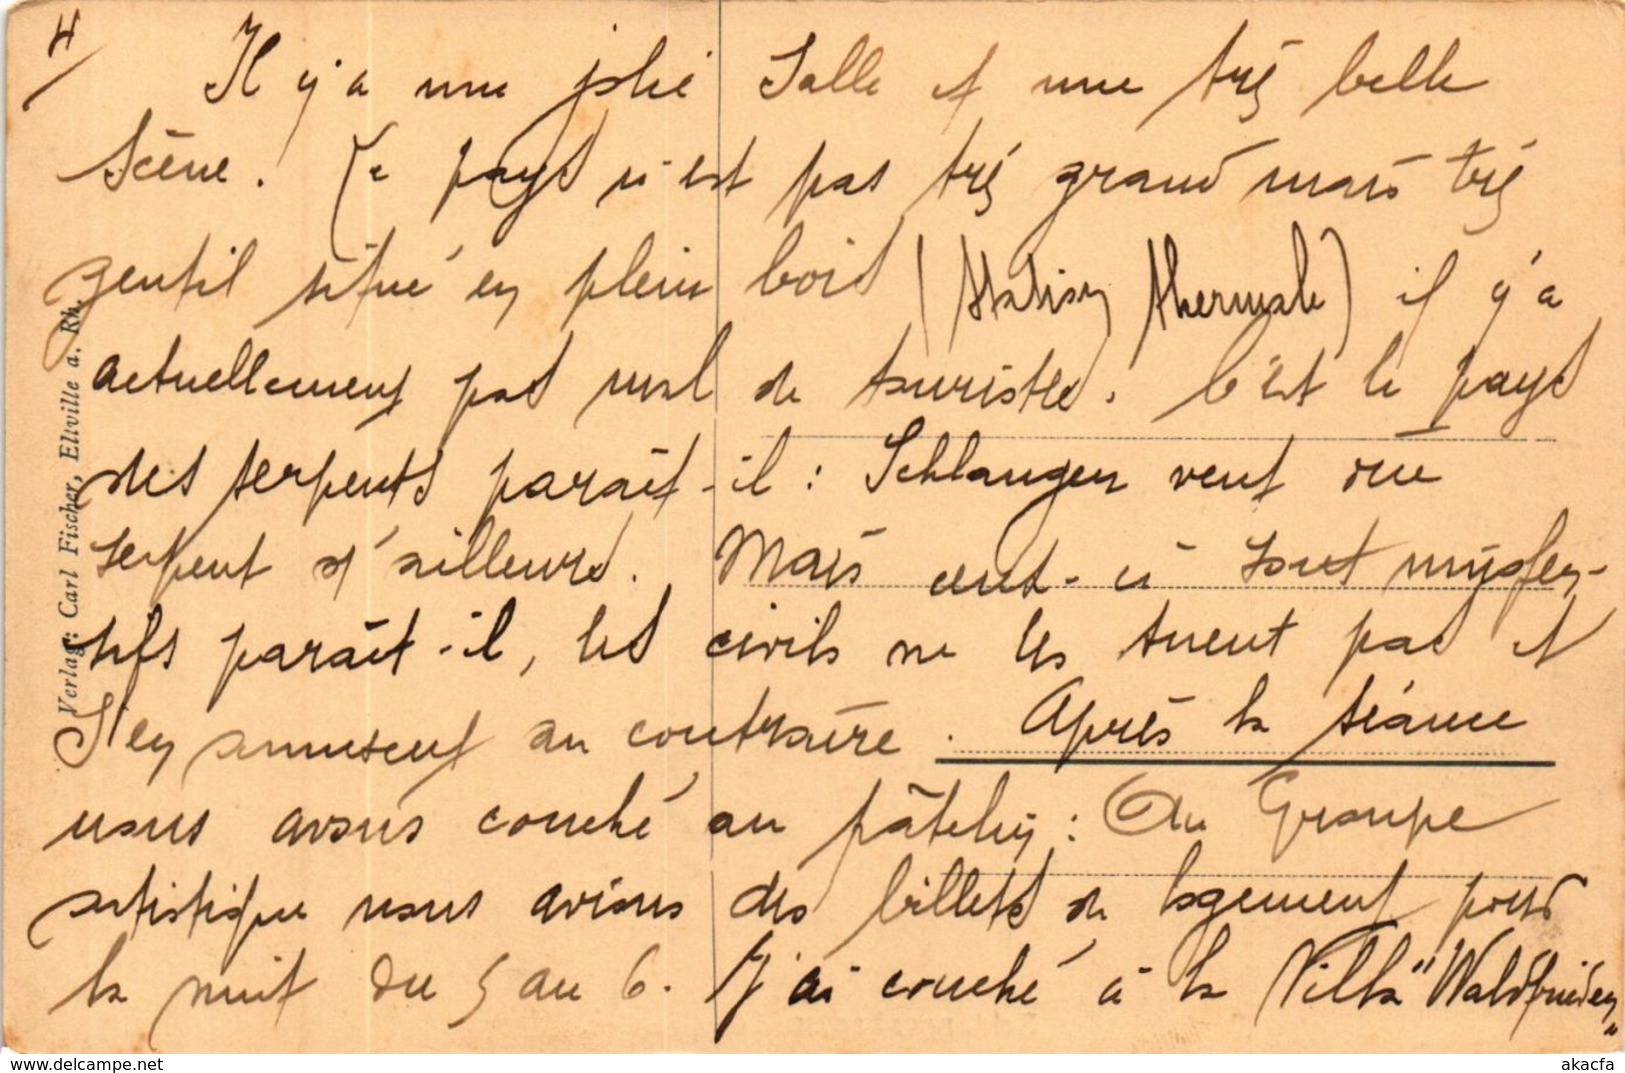 4/
Il y'a une jolie Salle et une très belle
Scène. Le pays n'est pas très grand mais très
gentil situé en plein bois (Station thermale) il y'a
actuellement pas mal de touristes. C'est le pays
des serpents paraît-il : Schlangen veut dire
serpent d'ailleurs. Mais ceux-ci sont inoffen-
sifs paraît-il, les civils ne les tuent pas et
S'en amusent au contraire. Après la séance
nous avons couché au patelin : Au Groupe
artistique nous avions des billets de logement pour
la nuit du 5 au 6. J'ai couché à la Villa "Waldfrieden"
Verlag: Carl Fischer, Eltville a. Rh.
akacfa
https://www.akacfa.com